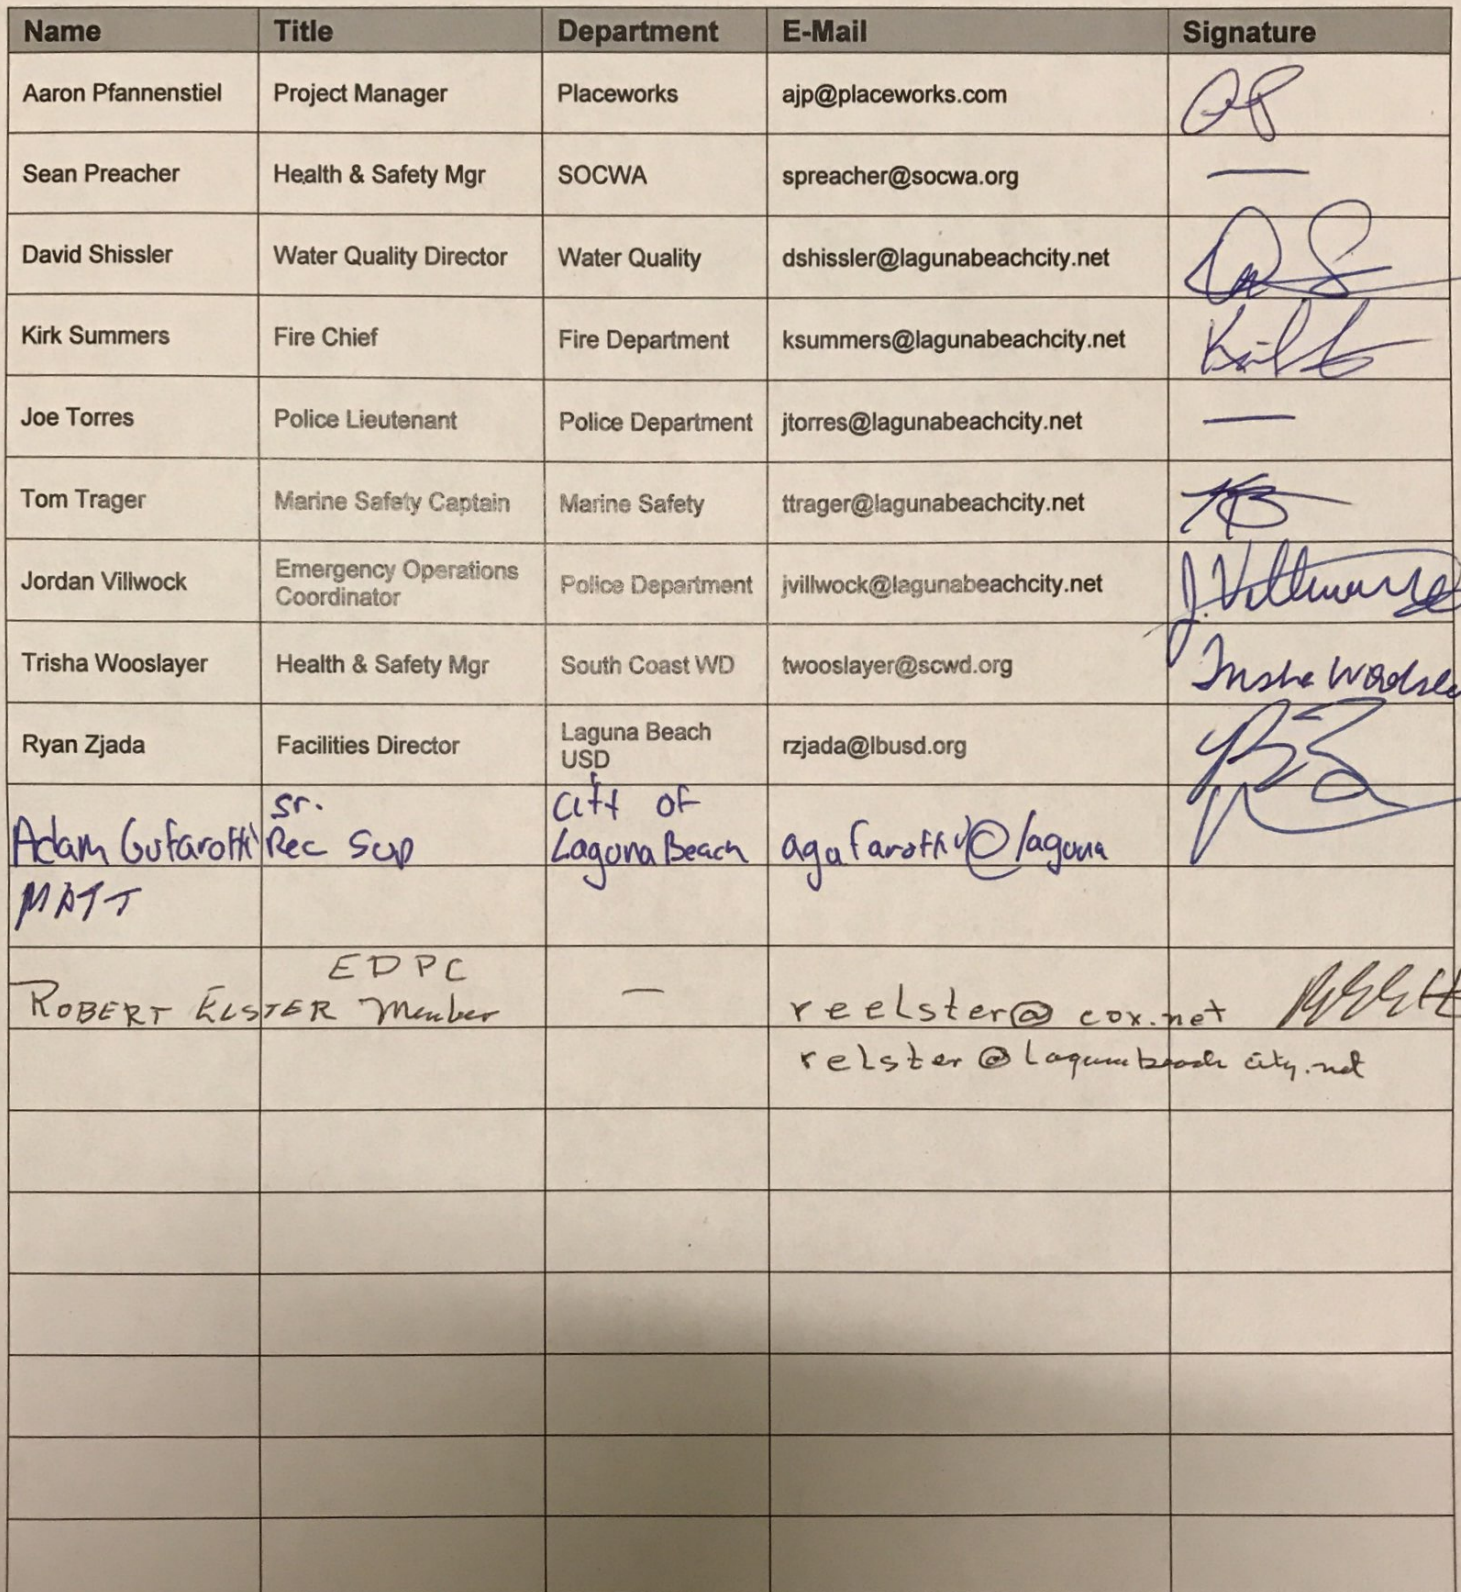 Name Title Department E-Mail Signature
Aaron Pfannenstiel Project Manager Placeworks ajp@placeworks.com
Sean Preacher Health & Safety Mgr SOCWA spreacher@socwa.org —
David Shissler Water Quality Director Water Quality dshissler@lagunabeachcity.net
Kirk Summers Fire Chief Fire Department ksummers@lagunabeachcity.net
Joe Torres Police Lieutenant Police Department jtorres@lagunabeachcity.net —
Tom Trager Marine Safety Captain Marine Safety ttrager@lagunabeachcity.net
Jordan Villwock Emergency Operations Police Department jvillwock@lagunabeachcity.net
Coordinator
Trisha Wooslayer Health & Safety Mgr South Coast WD twooslayer@scwd.org
Ryan Zjada Facilities Director Laguna Beach rzjada@lbusd.org
USD
sr. City of
Adam Gufarotti Rec Sup Laguna Beach agafarotti@laguna
MATT
EDPC
ROBERT ELSTER Member — reelster@cox.net
relster@lagunabeachcity.net